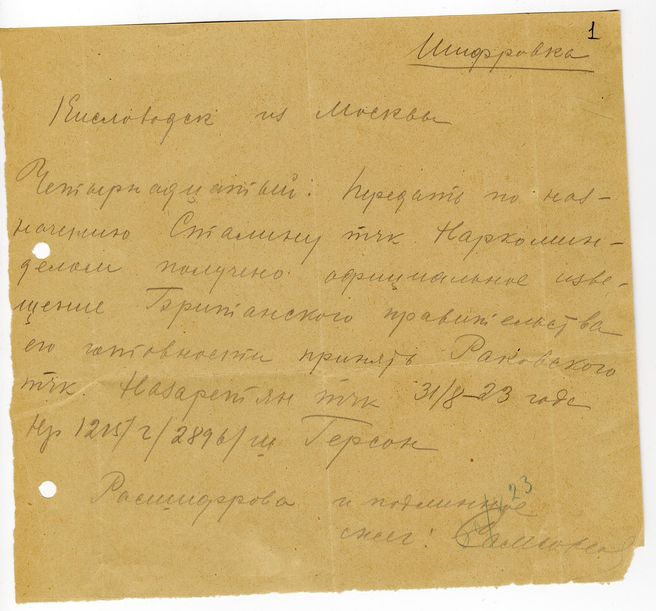 1
Шифровка
Кисловодск из Москвы
Четырнадцатый. Передать по наз-
начению Сталину тчк Наркомин-
делом получено официальное изве-
щение Британского правительства
его готовности принять Раковского
тчк. Назаретян тчк 31/8–23 года
Нр 1215/г/2896/ш Герсон
23
Расшифрова и подлинное
снег: